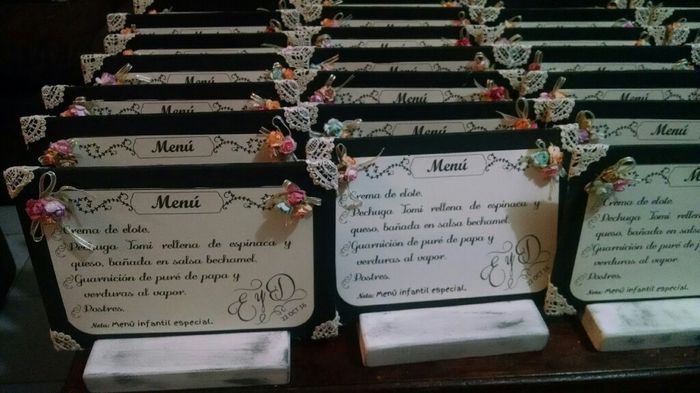 Menú
Menú
Menú
Menú
Menú
Menú
Menú
Menú
Menú
Menú
Crema de elote.
Pechuga Tomi rellena de espinaca y
queso, bañada en salsa bechamel.
Guarnición de puré de papa y
verduras al vapor.
Postres.
Nota: Menú infantil especial.
E y D
22 OCT 16
Menú
Crema de elote.
Pechuga Tomi rellena de espinaca y
queso, bañada en salsa bechamel.
Guarnición de puré de papa y
verduras al vapor.
Postres.
Nota: Menú infantil especial.
E y D
22 OCT 16
Menú
Crema de elote.
Pechuga Tomi rellena
queso, bañada en sals
Guarnición de puré de
verduras al vapor.
Postres.
Nota: Menú infantil especial